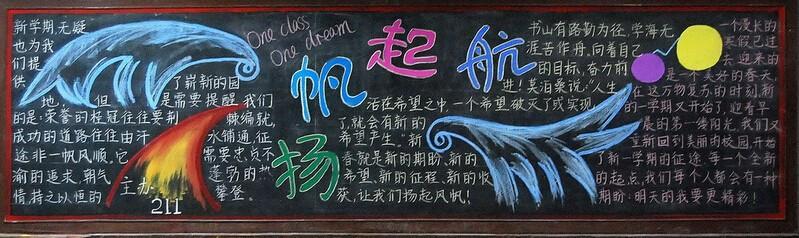 One class
One dream
扬帆起航
新学期,无疑
也为我
们提
供了崭新的园
地。但是需要提醒我们
的是:荣誉的桂冠往往要荆棘编就,
成功的道路往往由汗水铺通,征
途非一帆风顺,它需要忠贞不
渝的追求,朝气蓬勃的
情,持之以恒的攀登。
主办:
211
书山有路勤为径,学海无
涯苦作舟。向着自己
的目标,奋力前
进!吴泊桑说:“人生
活在希望之中,一个希望破灭了或实现
了,就会有新的
希望产生。”新
春就是新的期盼、新的
希望、新的征程、新的收
获,让我们扬起风帆!
一个漫长的
寒假已过
去迎来的
是一个美好的春天,
在这万物复苏的时刻,新
的一学期又开始了,迎着早
晨的第一缕阳光,我们又
重新回到美丽的校园,开始
了新一学期的征途,每一个全新
的起点,我们每个人都会有一种
期盼:明天的我要更精彩!